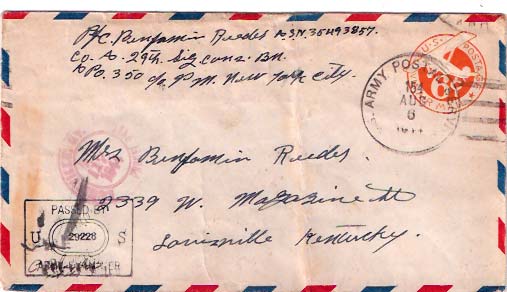 P/c. Benjamin Reedes A.S.N. 35493857.
Co. A. 29th. Sig. cons. Bn.
A P.O. 350 c/o P.M. New York City.
U.S. POSTAGE
6
AIR MAIL
ARMY POSTAL
AUG
6
Mrs Benjamin Reedes.
2339 W. Magazine St
Louisville Kentucky.
PASSED BY
U 29228 S
ARMY EXAMINER